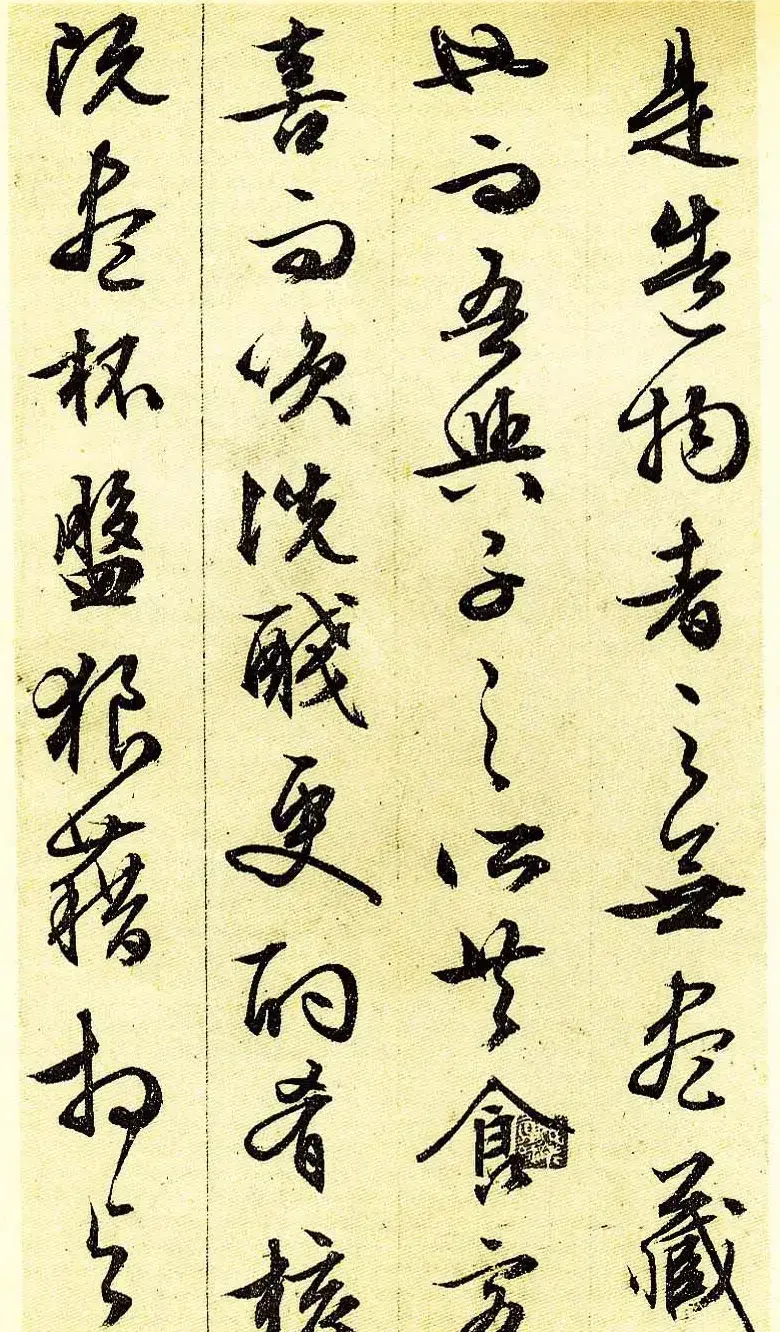 是造物者之無盡藏
也而吾與子之所共食客
喜而笑洗醆更酌肴核
既盡杯盤狼藉相与